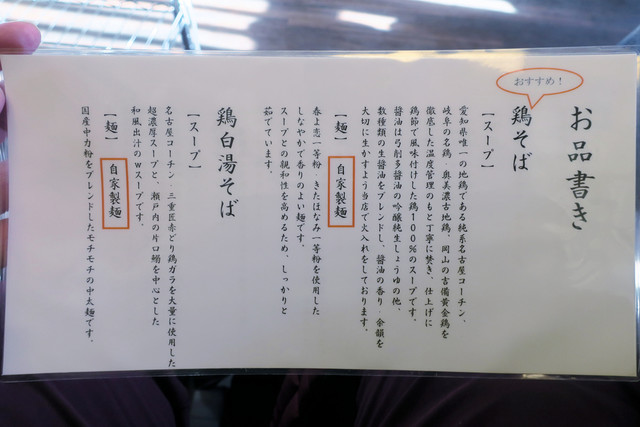 お品書き
おすすめ！
鶏そば
【スープ】
愛知県唯一の地鶏である純系名古屋コーチン、
岐阜の名鶏、奥美濃古地鶏、岡山の吉備黄金鶏を
徹底した温度管理のもと丁寧に焚き、仕上げに
鶏節で風味付けした鶏100％のスープです。
醤油は弓削多醤油の吟醸純生しょうゆの他、
数種類の生醤油をブレンドし、醤油の香り・余韻を
大切に生かすよう当店で火入れをしております。
【麺】 自家製麺
春よ恋一等粉・きたほなみ一等粉を使用した
しなやかで香りのよい麺です。
スープとの親和性を高めるため、しっかりと
茹でています。
鶏白湯そば
【スープ】
名古屋コーチン・三重匠赤どり鶏ガラを大量に使用した
超濃厚スープと、瀬戸内の片口鰯を中心とした
和風出汁のWスープです。
【麺】 自家製麺
国産中力粉をブレンドしたモチモチの中太麺です。